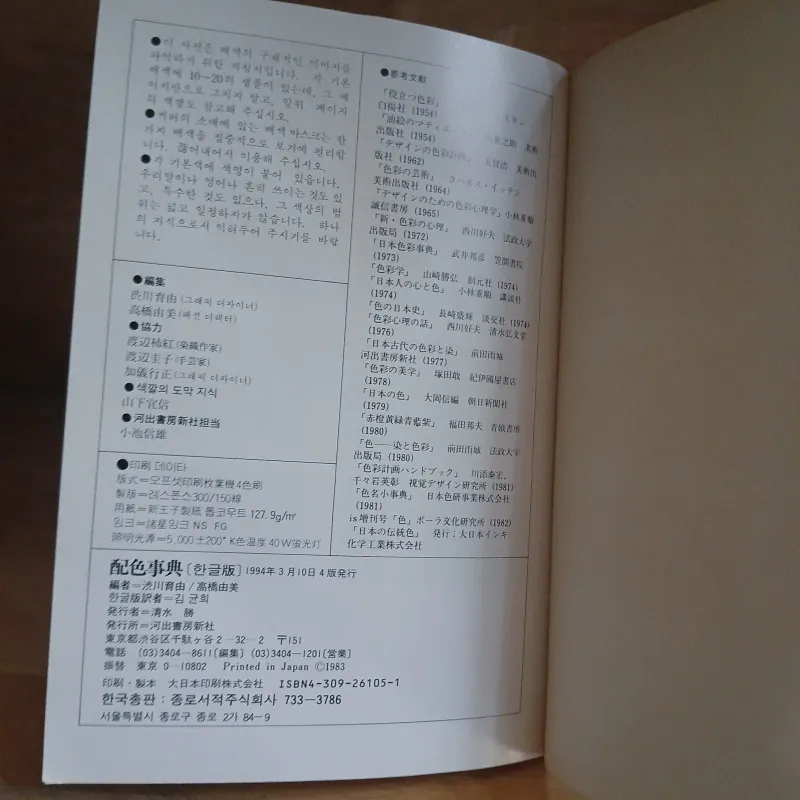 ●이 사전은 배색의 구체적인 이미지를
파악하기 위한 지침서입니다. 각 기본
배색에 10~20의 샘플이 있는데, 그 페
이지만으로 그치지 말고, 앞뒤 페이지
의 색깔도 참고해 주십시오.
●커버의 소매에 있는 배색 마스크는 한
가지 배색을 집중적으로 보기에 편리합
니다. 끊어내어서 이용해 주십시오.
●각 기본색에 색명이 붙어 있습니다.
우리말이나 영어나 흔히 쓰이는 것도 있
고, 특수한 것도 있으나, 그 색상의 범
위는 넓고 일정하지가 않습니다. 하나
의 지식으로서 이해두어 주시기를 바랍
니다.
●編集
渋川育由(그래픽 디자이너)
高橋由美(패션 디렉터)
●協力
渡辺柿紅(染織作家)
渡辺圭子(手芸家)
加儀行正(그래픽 디자이너)
●색깔의 도막 지식
山下宜信
●河出書房新社担当
小池信雄
●印刷 데이타
版式=오프셋印刷枚葉機4色刷
製版=레스폰스300/150線
用紙=新王子製紙 톱코우트 127.9g/㎡
잉크=諸星잉크 NS FG
照明光源=5,000±200°K色温度40W蛍光灯
●参考文献
「役立つ色彩」 スキン
白揚社 (1954)
「油絵のマティエール」 之助 美術
出版社 (1954)
「デザインの色彩計画」 大智浩 美術出
版社 (1962)
「色彩の芸術」 ヨハネス・イッテン
美術出版社 (1964)
「デザインのための色彩心理学」小林重順
誠信書房 (1965)
「新・色彩の心理」 西川好夫 法政大学
出版局 (1972)
「日本色彩事典」 武井邦彦 笠間書院
(1973)
「色彩学」 山崎勝弘 創元社 (1974)
「日本人の心と色」 小林重順 講談社
(1974)
「色の日本史」 長崎盛輝 淡交社 (1974)
「色彩心理の話」 西川好夫 清水弘文堂
(1976)
「日本古代の色彩と染」 前田雨城
河出書房新社 (1977)
「色彩の美学」 塚田敢 紀伊國屋書店
(1978)
「日本の色」 大岡信編 朝日新聞社
(1979)
「赤橙黄緑青藍紫」 福田邦夫 青娥書房
(1980)
「色——染と色彩」 前田雨城 法政大学
出版局 (1980)
「色彩計画ハンドブック」 川添泰宏、
千々岩英彰 視覚デザイン研究所 (1981)
「色名小事典」 日本色研事業株式会社
(1981)
is増刊号「色」ポーラ文化研究所 (1982)
「日本の伝統色」 発行：大日本インキ
化学工業株式会社
配色事典[한글版] 1994年3月10日4版発行
編者=渋川育由/高橋由美
한글版訳者=김 균희
発行者=清水 勝
発行所=河出書房新社
東京都渋谷区千駄ヶ谷2-32-2 〒151
電話 (03)3404-8611[編集] (03)3404-1201[営業]
振替 東京 0-10802 Printed in Japan ©1983
印刷・製本 大日本印刷株式会社 ISBN4-309-26105-1
한국총판：종로서적주식회사 733-3786
서울특별시 종로구 종로 2가 84-9